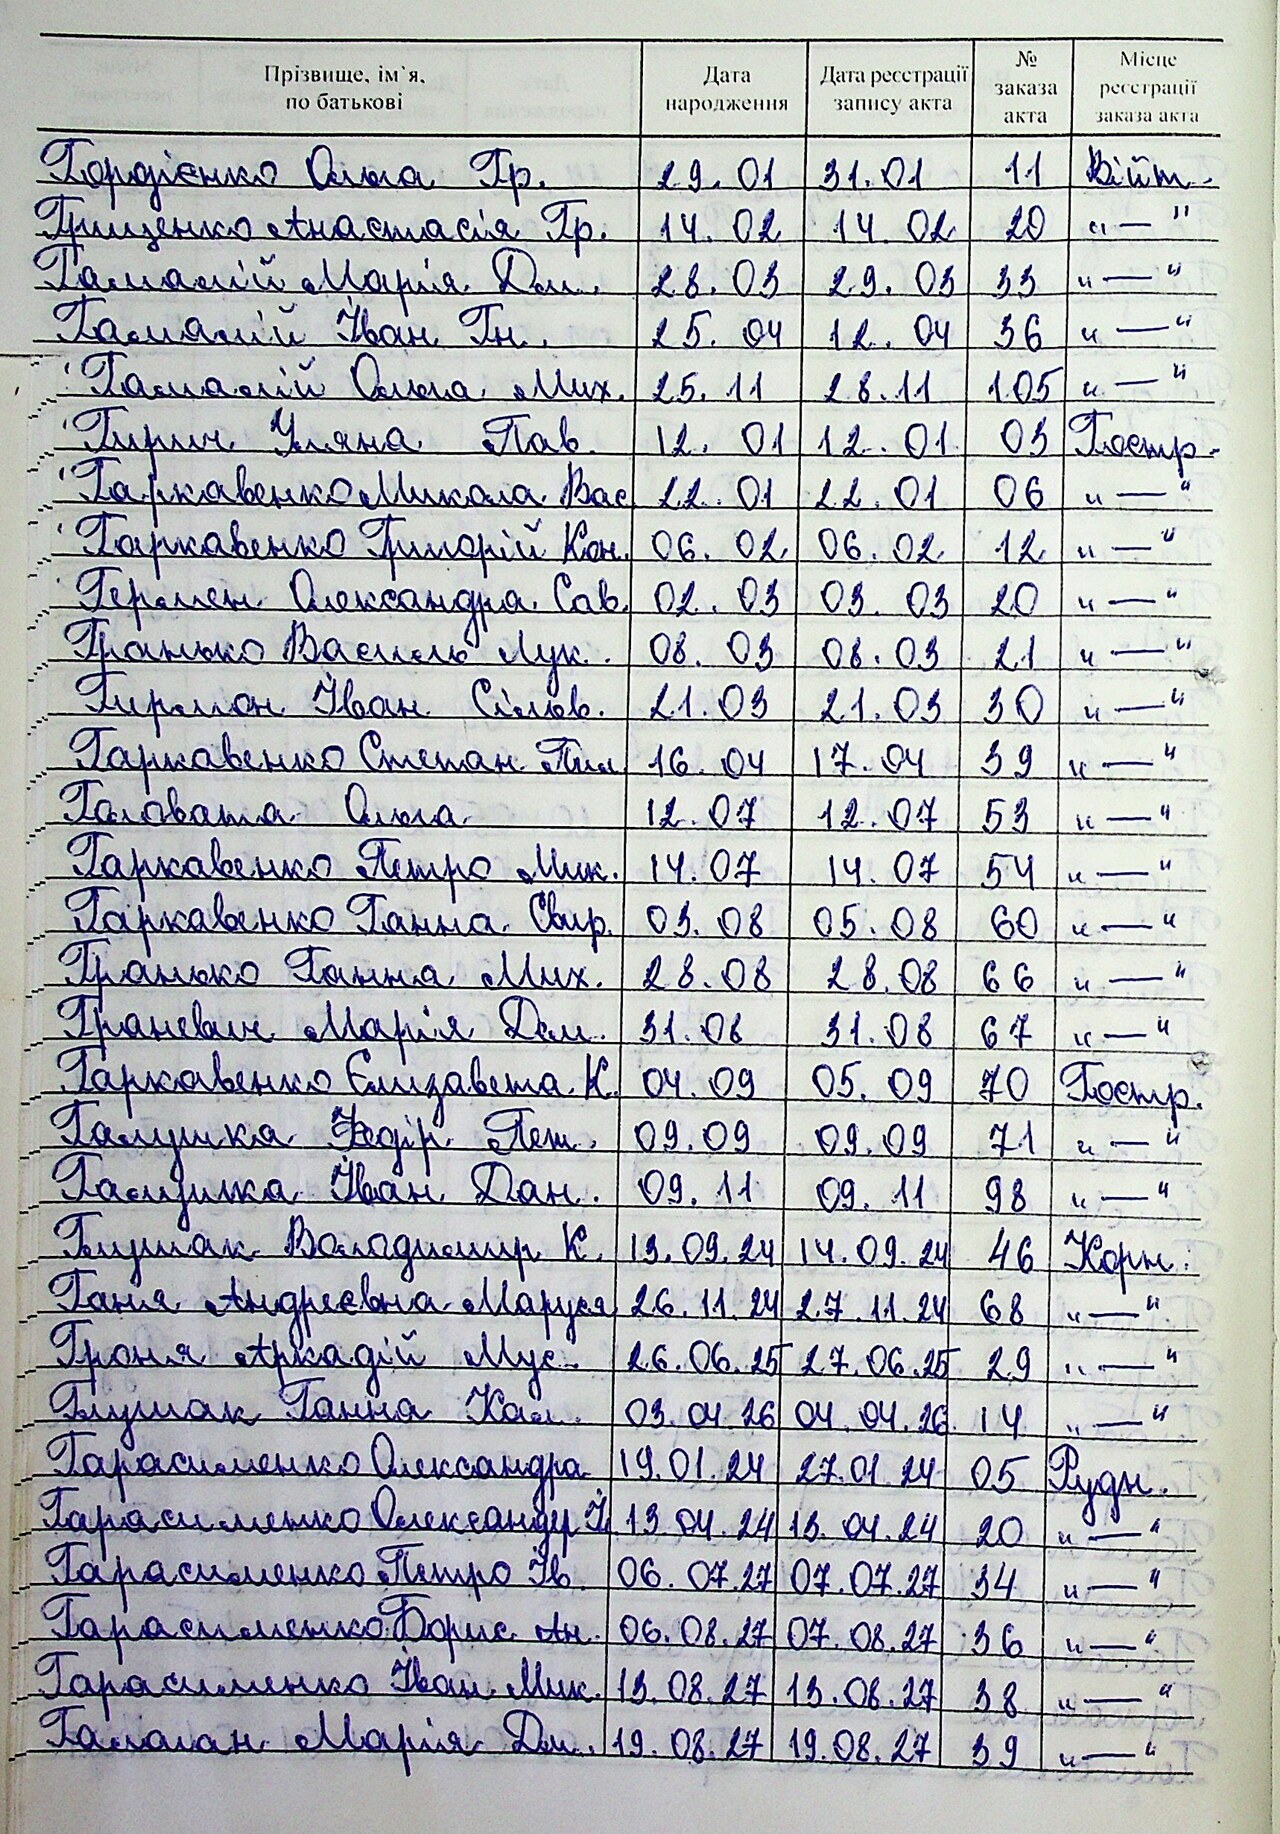 Прізвище, ім`я, по батькові Дата народження Дата реєстрації запису акта № заказа акта Місце реєстрації заказа акта
Гордієнко Ольга Гр. 29.01 31.01 11 Війт.
Грищенко Анастасія Гр. 14.02 14.02 20 "—"
Гамалій Марія Дм. 28.03 29.03 33 "—"
Гамалій Іван Гн. 25.04 12.04 36 "—"
Гамалій Ольга Мих. 25.11 28.11 105 "—"
Гирич Уляна Пав. 12.01 12.01 03 Гостр.
Гаркавенко Микола Вас. 22.01 22.01 06 "—"
Гаркавенко Григорій Кон. 06.02 06.02 12 "—"
Гермен Олександра Сав. 02.03 03.03 20 "—"
Гранько Василь Лук. 08.03 08.03 21 "—"
Гирман Іван Сілов. 21.03 21.03 30 "—"
Гаркавенко Степан Пил. 16.04 17.04 39 "—"
Головата Ольга 12.07 12.07 53 "—"
Гаркавенко Петро Мик. 14.07 14.07 54 "—"
Гаркавенко Ганна Свир. 03.08 05.08 60 "—"
Гранько Ганна Мих. 28.08 28.08 66 "—"
Граневич Марія Дем. 31.08 31.08 67 "—"
Гаркавенко Єлизавета К. 04.09 05.09 70 Гостр.
Галушка Федір Пет. 09.09 09.09 71 "—"
Галушка Іван Дан. 09.11 09.11 98 "—"
Глушак Володимир К. 13.09.24 14.09.24 46 Корн.
Ганя Андреєвна Маруся 26.11.24 27.11.24 68 "—"
Гроня Аркадій Мус. 26.06.25 27.06.25 29 "—"
Глушак Ганна Кал. 03.04.26 04.04.26 14 "—"
Гарасименко Олександра 19.01.24 27.01.24 05 Рудн.
Гарасименко Олександр І. 13.04.24 13.04.24 20 "—"
Гарасименко Петро Ів. 06.07.27 07.07.27 34 "—"
Гарасименко Борис Ан. 06.08.27 07.08.27 36 "—"
Гарасименко Іван Мик. 13.08.27 13.08.27 38 "—"
Галаган Марія Дм. 19.08.27 19.08.27 39 "—"